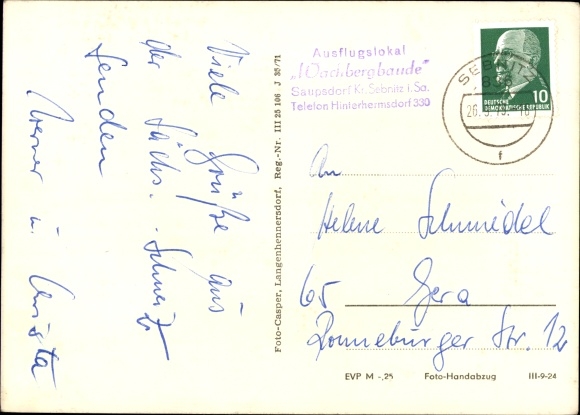 Viele Grüße aus
der Sächs. Schweiz
senden
Werner u. Christa
Foto-Casper, Langenhennersdorf, Reg.-Nr. III 25 106 J 35/71
Ausflugslokal
„Wachbergbaude"
Saupsdorf Kr. Sebnitz i. Sa.
Telefon Hinterhermsdorf 330
SEBNITZ
DEUTSCHE
DEMOKRATISCHE REPUBLIK
10
f
An
Helene Schmiedel
65 Gera
Ronneburger Str. 12
EVP M -,25 Foto-Handabzug III-9-24